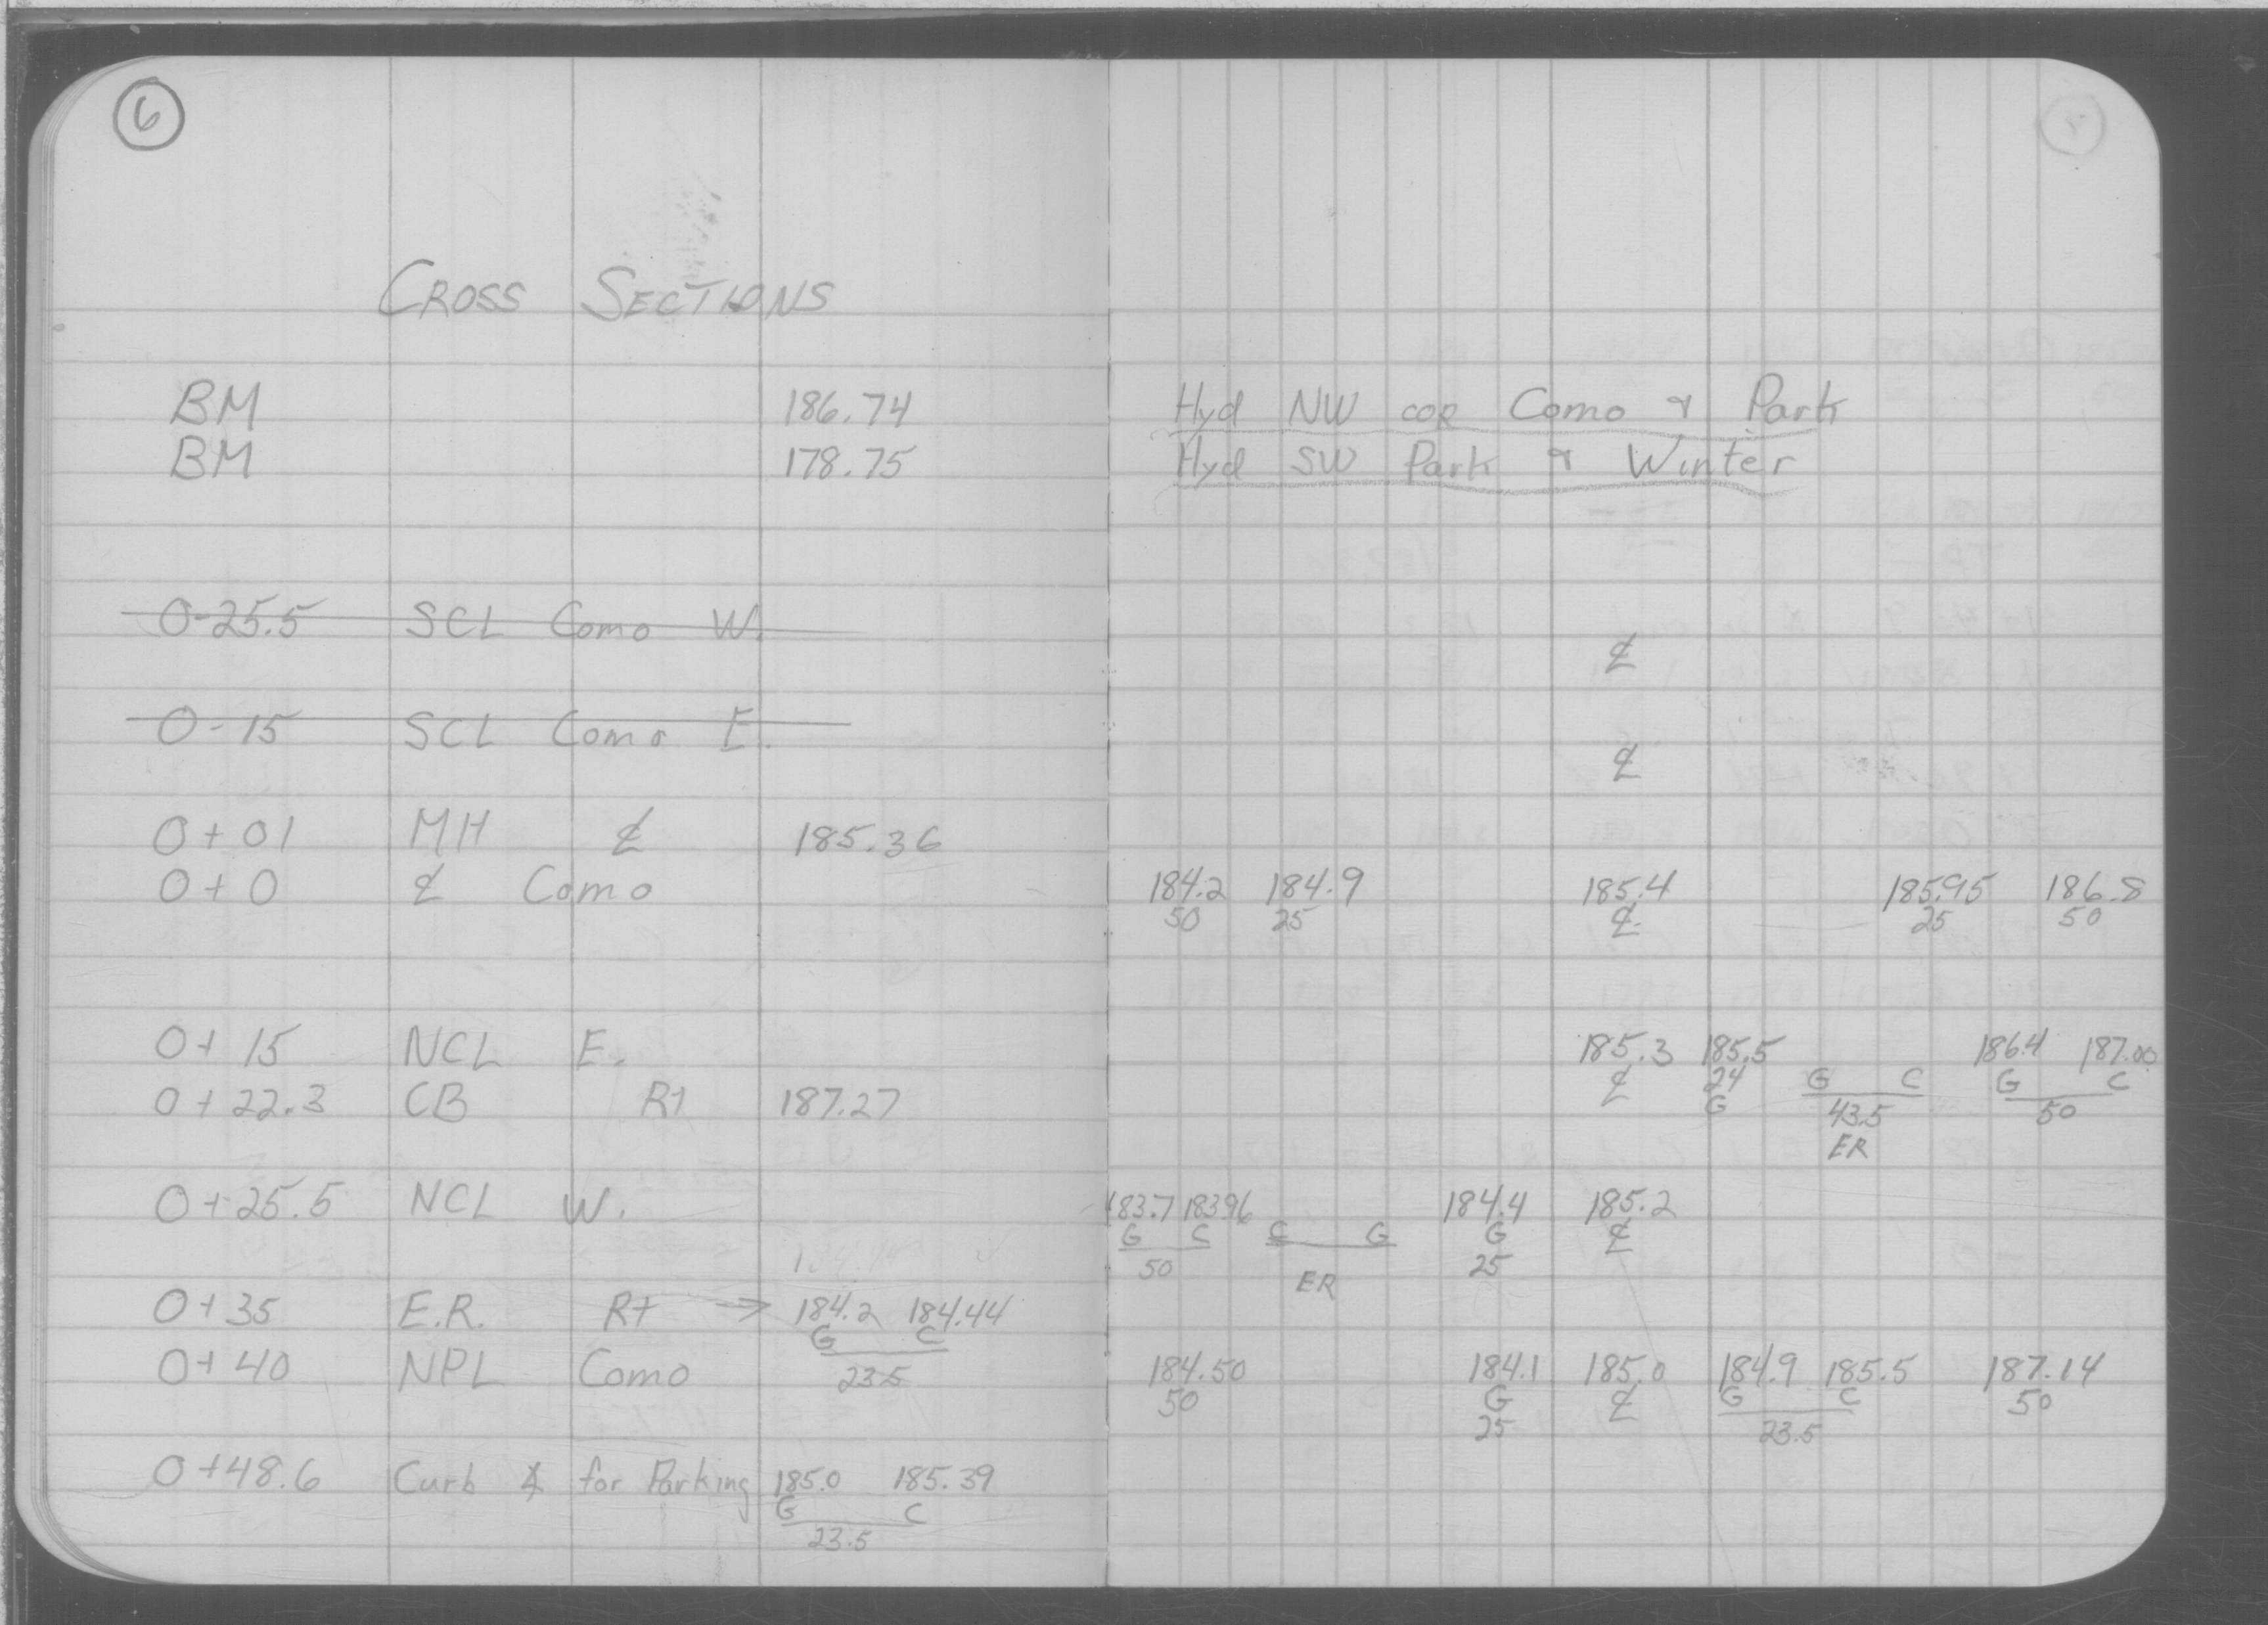 6
CROSS SECTIONS
BM 186.74 Hyd NW COR Como & Park
BM 178.75 Hyd SW Park & Winter
0-25.5 SCL Como W.
℄
0-15 SCL Como E.
℄
0+01 MH ℄ 185.36
0+0 ℄ Como 184.2 184.9 185.4 185.95 186.8
50 25 ℄ 25 50
0+15 NCL E. 185.3 185.5 186.4 187.00
℄ 24 G C G C
0+22.3 CB Rt 187.27 G 43.5 50
ER
0+25.5 NCL W. 183.7 183.96 184.4 185.2
G C C G G ℄
50 ER 25
0+35 E.R. Rt → 184.2 184.44
G C
0+40 NPL Como 23.5 184.50 184.1 185.0 184.9 185.5 187.14
50 G ℄ G C 50
25 23.5
0+48.6 Curb for Parking 185.0 185.39
G C
23.5